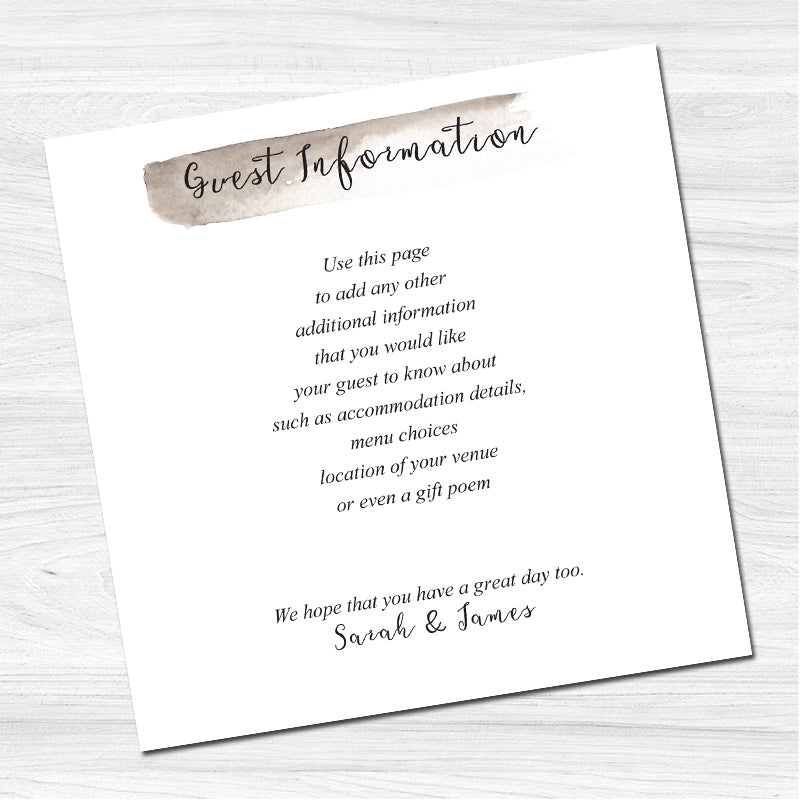 Guest Information
Use this page
to add any other
additional information
that you would like
your guest to know about
such as accommodation details,
menu choices
location of your venue
or even a gift poem
We hope that you have a great day too.
Sarah & James